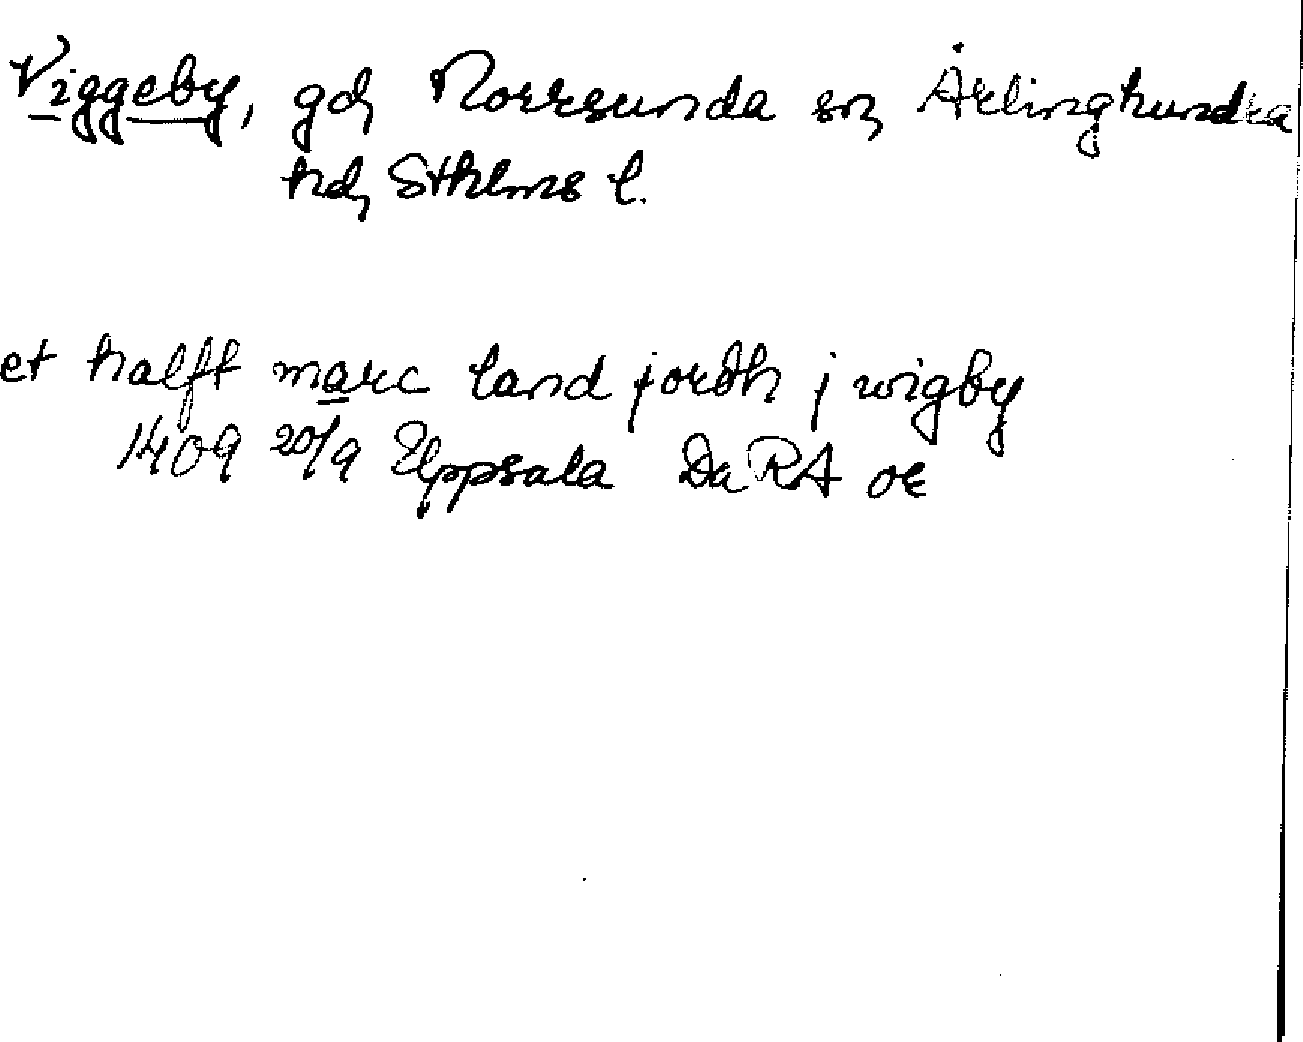 Viggeby, gd, Norrsunda sn, Ärlinghundra
hd, Sthlms l.
et halfft marc land jordh j wigby
1409 20/9 Uppsala Da RA or